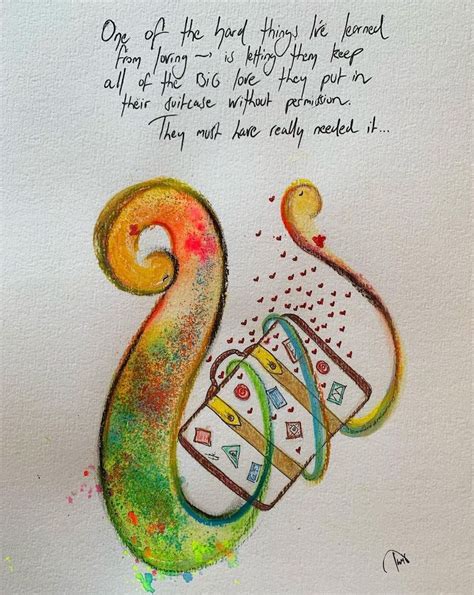 One of the hard things I've learned
from loving → is letting them keep
all of the BiG love they put in
their suitcase without permission.
They must have really needed it...